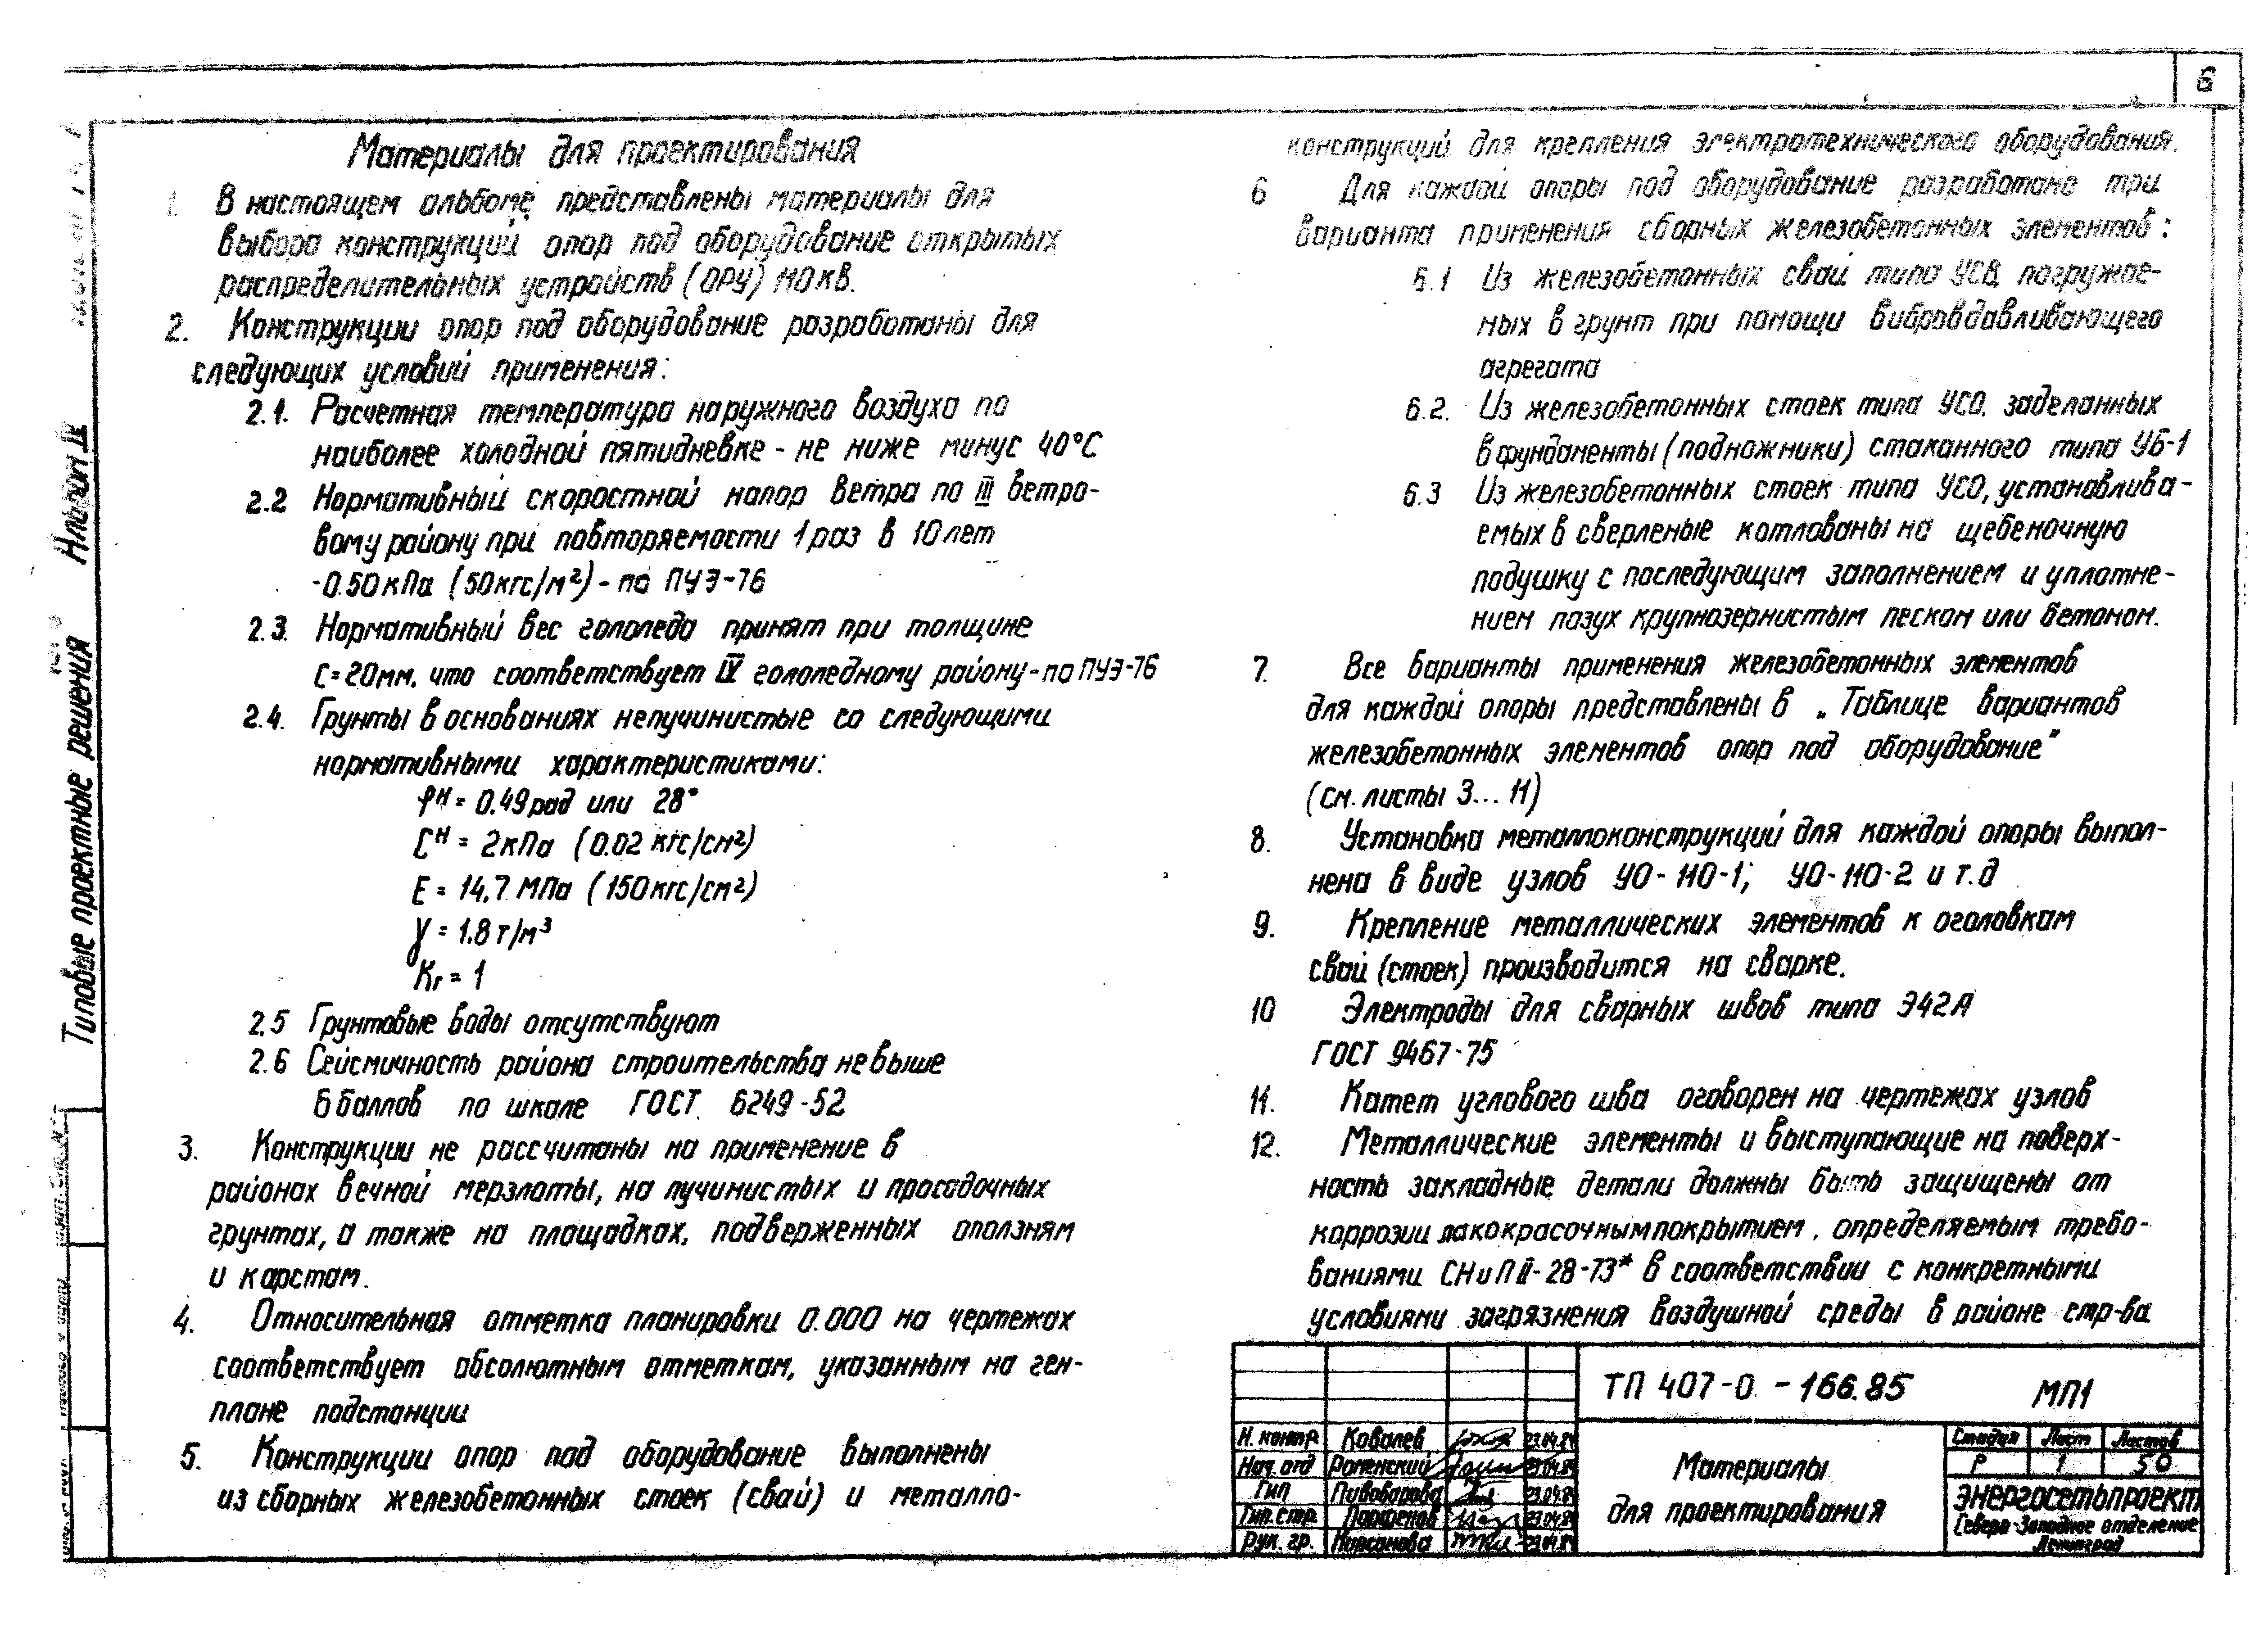 6
Материалы для проектирования
1. В настоящем альбоме представлены материалы для
выбора конструкций опор под оборудование открытых
распределительных устройств (ОРУ) 110 кВ.
2. Конструкции опор под оборудование разработаны для
следующих условий применения:
2.1. Расчетная температура наружного воздуха по
наиболее холодной пятидневке - не ниже минус 40°С
2.2 Нормативный скоростной напор ветра по III ветро-
вому району при повторяемости 1 раз в 10 лет
-0.50 кПа (50 кгс/м²) - по ПУЭ-76
2.3. Нормативный вес гололеда принят при толщине
С=20мм, что соответствует IV гололедному району - по ПУЭ-76
2.4. Грунты в основаниях непучинистые со следующими
нормативными характеристиками:
φᴴ = 0.49 рад или 28°
Cᴴ = 2 кПа (0.02 кгс/см²)
E = 14,7 МПа (150 кгс/см²)
γ = 1.8 т/м³
Кг = 1
2.5 Грунтовые воды отсутствуют
2.6 Сейсмичность района строительства не выше
6 баллов по шкале ГОСТ 6249-52
3. Конструкции не рассчитаны на применение в
районах вечной мерзлоты, на пучинистых и просадочных
грунтах, а также на площадках, подверженных оползням
и карстам.
4. Относительная отметка планировки 0.000 на чертежах
соответствует абсолютным отметкам, указанным на ген-
плане подстанции
5. Конструкции опор под оборудование выполнены
из сборных железобетонных стоек (свай) и металло-
конструкций для крепления электротехнического оборудования.
6 Для каждой опоры под оборудование разработано три
варианта применения сборных железобетонных элементов:
6.1 Из железобетонных свай типа УСВ, погружае-
мых в грунт при помощи вибровдавливающего
агрегата
6.2. Из железобетонных стоек типа УСО, заделанных
в фундаменты (подножники) стаканного типа УБ-1
6.3 Из железобетонных стоек типа УСО, устанавлива-
емых в сверленые котлованы на щебеночную
подушку с последующим заполнением и уплотне-
нием пазух крупнозернистым песком или бетоном.
7. Все варианты применения железобетонных элементов
для каждой опоры представлены в „Таблице вариантов
железобетонных элементов опор под оборудование"
(см. листы 3... 11)
8. Установка металлоконструкций для каждой опоры выпол-
нена в виде узлов УО-110-1; УО-110-2 и т.д
9. Крепление металлических элементов к оголовкам
свай (стоек) производится на сварке.
10 Электроды для сварных швов типа Э42А
ГОСТ 9467-75
11. Катет углового шва оговорен на чертежах узлов
12. Металлические элементы и выступающие на поверх-
ность закладные детали должны быть защищены от
коррозии лакокрасочным покрытием, определяемым требо-
ваниями СНиП II-28-73* в соответствии с конкретными
условиями загрязнения воздушной среды в районе стр-ва
Типовые проектные решения Альбом II
ТП 407-0 -166.85 МП1
Н. контр. Ковалев 23.04.84
Нач. отд Роменский 23.04.84
Гип Пивоварова 23.04.84
Гип. стр. Парфенов 23.04.84
Рук. гр. Кирсанова 23.04.84
Материалы
для проектирования
Стадия Лист Листов
Р 1 50
ЭНЕРГОСЕТЬПРОЕКТ
Северо-Западное отделение
Ленинград